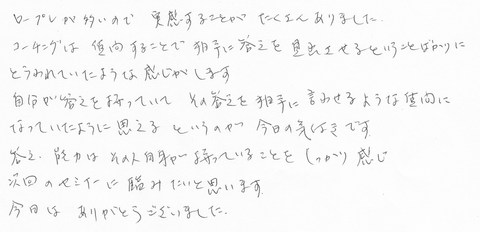 ロープレが多いので 実感することが たくさんありました。
コーチングは 質問することで 相手に答えを 見出させるということばかりに
とらわれていたような感じがします
自分が答えを持っていて その答えを 相手に言わせるような質問に
なっていたように思える というのが 今日の気付きです。
答え、能力は その人自身が 持っていることを しっかり 感じ
次回のセミナーに 臨みたいと思います。
今日は ありがとうございました。